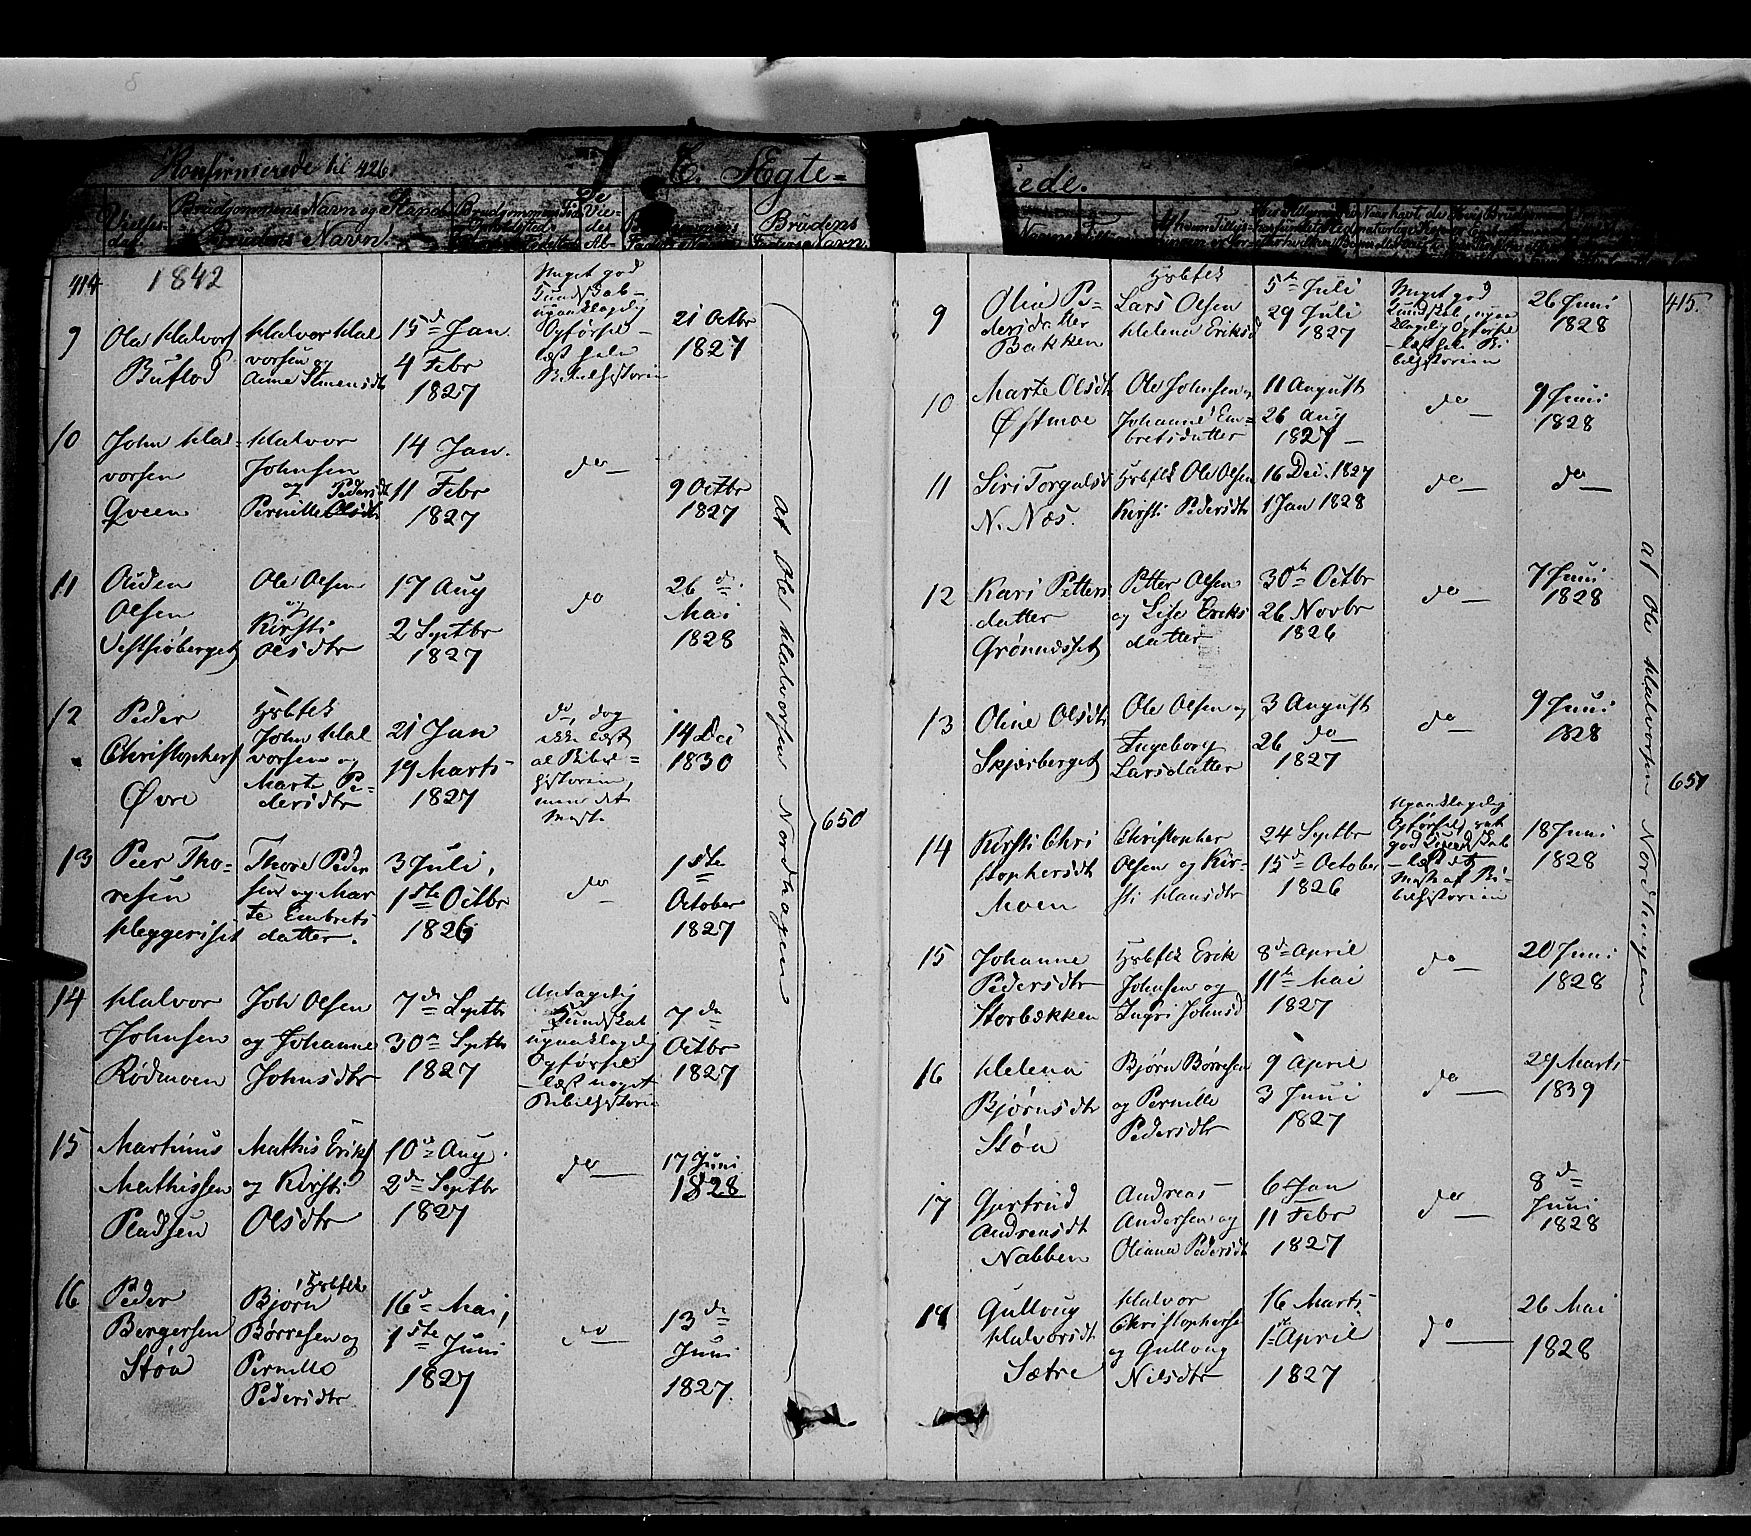 Konfirmerede til 426.
E. Ægte-
ede.
Vielses-
Brudgommens Navn og
Brudens Navn.
Brudens
414
1842
9
Ole Halvors
Buflod
Halvor Hal
vorsen og
Anne Simensdt
15d Jan.
4 Febr
1827
Meget god
Kundskab-
upaaklagelig
Opførsel-
læst hele
Bibelhistorien
21 Octbr
1827
10
John Hal-
vorsen
Qveen
Halvor
Johnsen
og Pedersdt
Pernille Olsdt
14 Jan.
11 Febr
1827
do
9 Octbr
1827
11
Auden
Olsen
Vestsiøberget
Ole Olsen
og
Kirsti
Olsdtr
17 Aug
2 Septbr
1827
do
26 de
Mai
1828
12
Peder
Christophers
Øvre
John Hal
vorsen og
Marte Pe-
dersdtr
21 Jan
19 Marts
1827
do, dog
ikke læst
al Bibel-
historien,
men det
Meste
14 Dec
1830
13
Peer Tho-
resen
Heggeriset
Thore Peder
sen og Mar
te Embrets
datter.
3 Juli,
1ste Octbr
1826
do
1ste
October
1827
14
Halvor
Johnsen
Rødmoen
Joh Olsen
og Johanne
Johnsdtr
7de Septbr
30te Septbr
1827
Antagelig
Kundskab
upaaklagelig
Opførsel
- læst noget
Bibelhistorie
7de
Octbr
1827
15
Martinus
Mathissen
Pladsen
Mathis Eriks
og Kirsti
Olsdtr
10de Aug.
2de Septbr
1827
do
17 Juni
1828
16
Peder
Bergersen
Støa
Bjørn
Børresen og
Pernille
Pedersdtr
16de Mai,
1ste Juni
1827
do
13de
Juni
1827.
at Ole Halvorsen Nordhagen
650
415.
9
Oline Pe-
dersdatter
Bakken
Lars Olsen
Helena Eriksd
5te Juli
29 Juli
1827
Meget god
Kundskb, upaa
klagelig Opførsel
- læst hele Bi
belhistorien
26 Juni
1828
10
Marte Olsdt
Østmoe
Ole Johnsen og
Johanne Em-
bretsdatter
11 August
26 Aug
1827
do
9 Juni
1828
11
Siri Torgalsd
N. Næs.
Ole Olsen
Kirsti Pedersdtr
16 Dec. 1827
1 Jan 1828
do
do
12
Kari Petters
datter
Grønnæsset
Petter Olsen
og Lise Eriks
datter
30te Octbr
26 Novbr
1826
do
7 Juni
1828
13
Oline Olsdtr
Skjærberget
Ole Olsen og
Ingeborg
Larsdatter
3 August
26 do
1827
do
9 Juni
1828
14
Kirsti Chri
stophersdt
Moen
Christopher
Olsen og Kir-
sti Hansdtr
24 Septbr
15de October
1826
Upaaklagelig
Opførsel, ret
god Kundskab
- læst det
Meste af Bi-
belhistorien
18 Juni
1828
15
Johanne
Pedersdtr
Storbækken
Erik
Johnsen og
Ingri Johnsd
8de April
11te Mai
1827
do
20 Juni
1828
16
Helena
Bjørnsdtr
Støa
Bjørn Børresen
og Pernille
Pedersdtr
9 April
3 Juni
1827
do
29 Marts
1839
17
Gjertrud
Andreasdt
Nabben
Andreas
Andersen og
Oliana Pedersdt
6 Jan
11 Febr
1827
do
8de
Juni
1828
18
Gullaug
Halvorsdt
Sætre
Halvor
Christophersen
og Gullaug
Nilsdtr
16 Marts
1ste April
1827
do
26 Mai
1828
af Ole Halvorsen Nordhagen
651